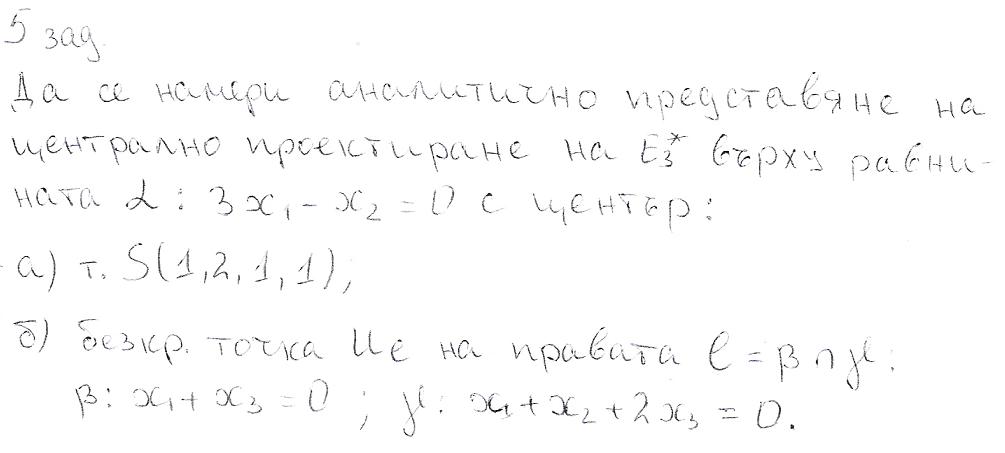 5 зад.
Да се намери аналитично представяне на
централно проектиране на E₃* върху равни-
ната α : 3x₁ - x₂ = 0 с център :
а) т. S(1,2,1,1);
б) безкр. точка Uℓ на правата ℓ = β ∩ γ :
β: x₁ + x₃ = 0 ; γ: x₁ + x₂ + 2x₃ = 0.